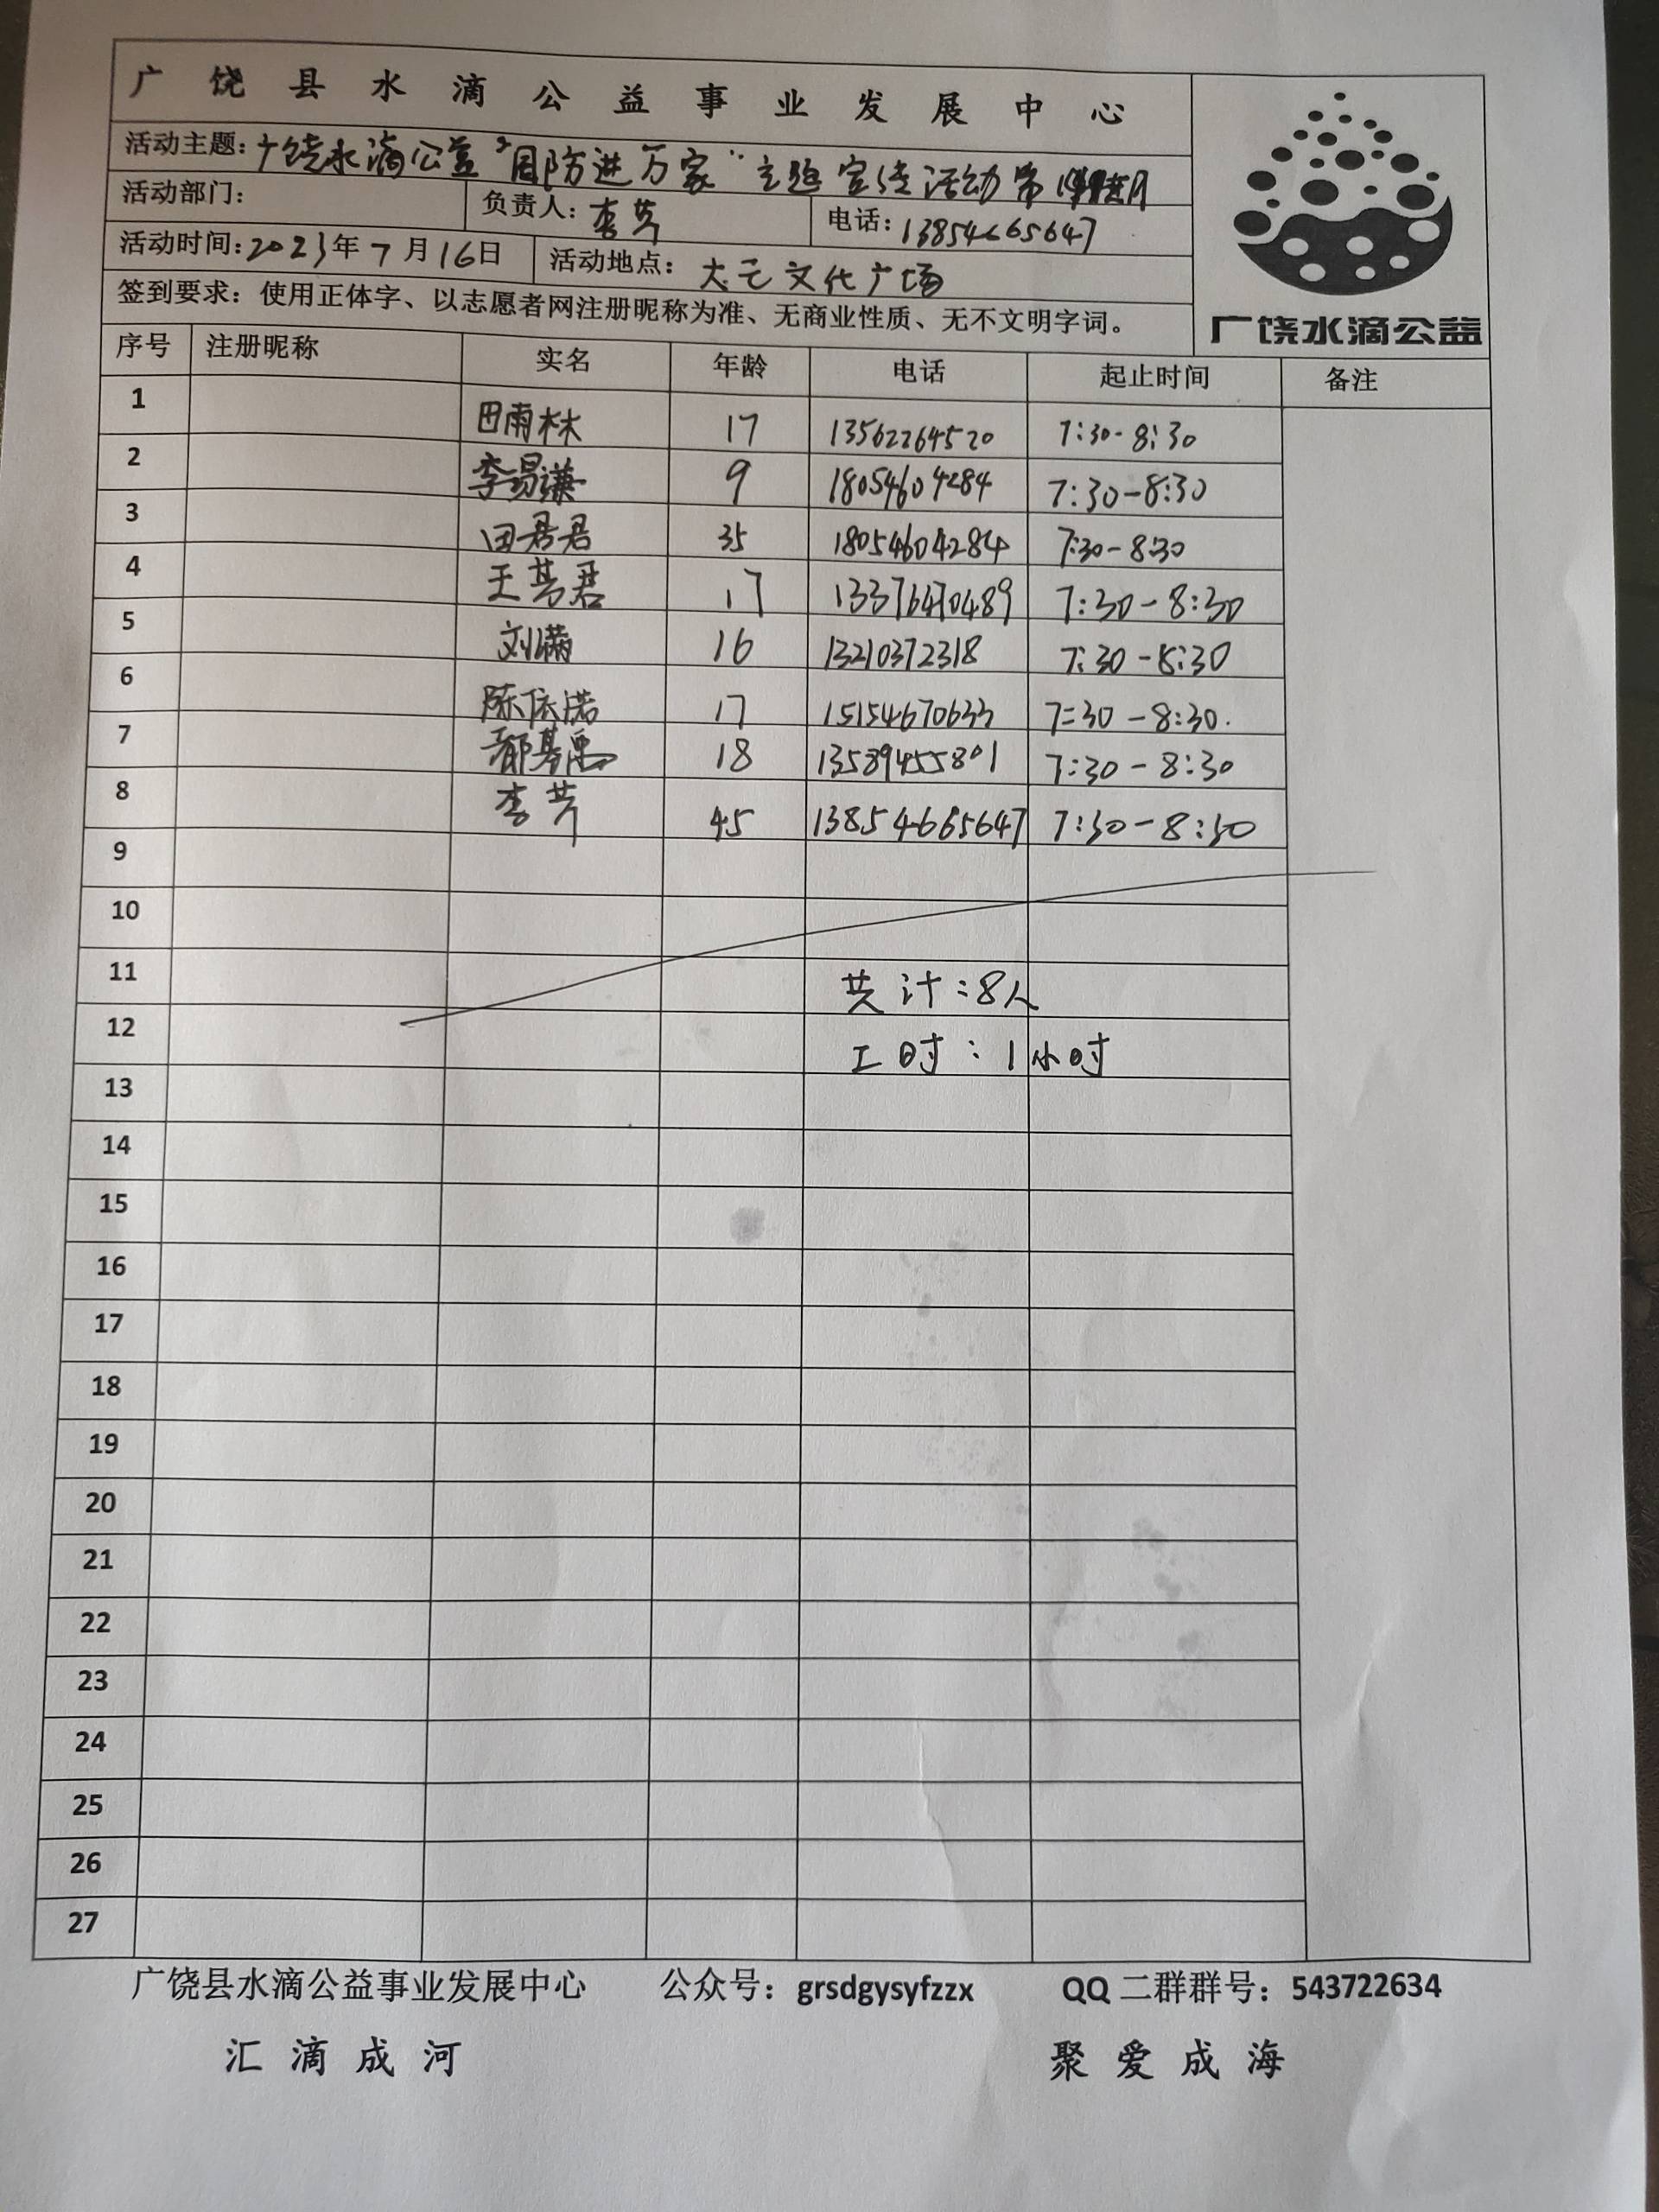 广饶县水滴公益事业发展中心
活动主题：广饶水滴公益"国防进万家"主题宣传活动第
活动部门： 负责人：李芹 电话：13854665647
活动时间：2023年7月16日 活动地点：大王文化广场
签到要求：使用正体字、以志愿者网注册昵称为准、无商业性质、无不文明字词。
广饶水滴公益
序号 注册昵称 实名 年龄 电话 起止时间 备注
1 田雨林 17 13562264520 7:30-8:30
2 李易谦 9 18054604284 7:30-8:30
3 田君君 35 18054604284 7:30-8:30
4 王君 17 13376470489 7:30-8:30
5 刘满 16 13210372318 7:30-8:30
6 陈依诺 17 15154670633 7:30-8:30.
7 18 13589455801 7:30-8:30
8 李芹 45 13854665647 7:30-8:30
9
10
11 共计：8人
12 工时：1小时
13
14
15
16
17
18
19
20
21
22
23
24
25
26
27
广饶县水滴公益事业发展中心 公众号：grsdgysyfzzx QQ二群群号：543722634
汇滴成河 聚爱成海